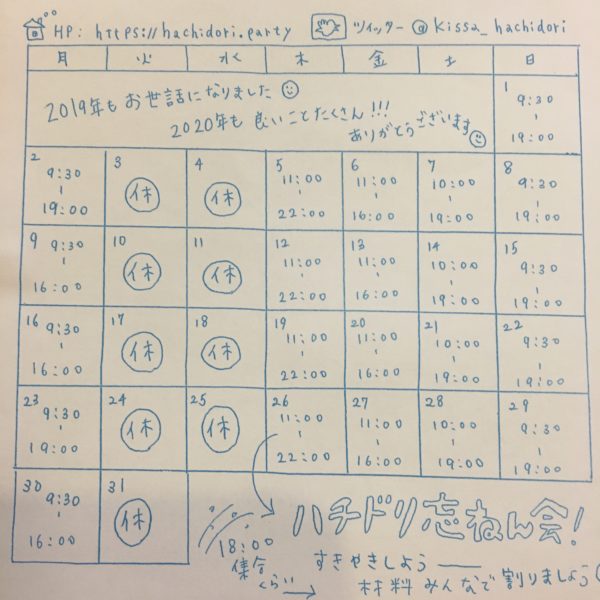 HP: https://hachidori.party ツイッター@kissa_hachidori
月 火 水 木 金 土 日
2019年もお世話になりました
2020年も良いことたくさん!!!
ありがとうございます
1 9:30-19:00
2 9:30-19:00
3 休
4 休
5 11:00-22:00
6 11:00-16:00
7 10:00-19:00
8 9:30-19:00
9 9:30-16:00
10 休
11 休
12 11:00-22:00
13 11:00-16:00
14 10:00-19:00
15 9:30-19:00
16 9:30-16:00
17 休
18 休
19 11:00-22:00
20 11:00-16:00
21 10:00-19:00
22 9:30-19:00
23 9:30-19:00
24 休
25 休
26 11:00-22:00
27 11:00-16:00
28 10:00-19:00
29 9:30-19:00
30 9:30-16:00
31 休
ハチドリ忘ねん会!
18:00
集合
くらい
すきやきしよう
材料みんなで割りましょう